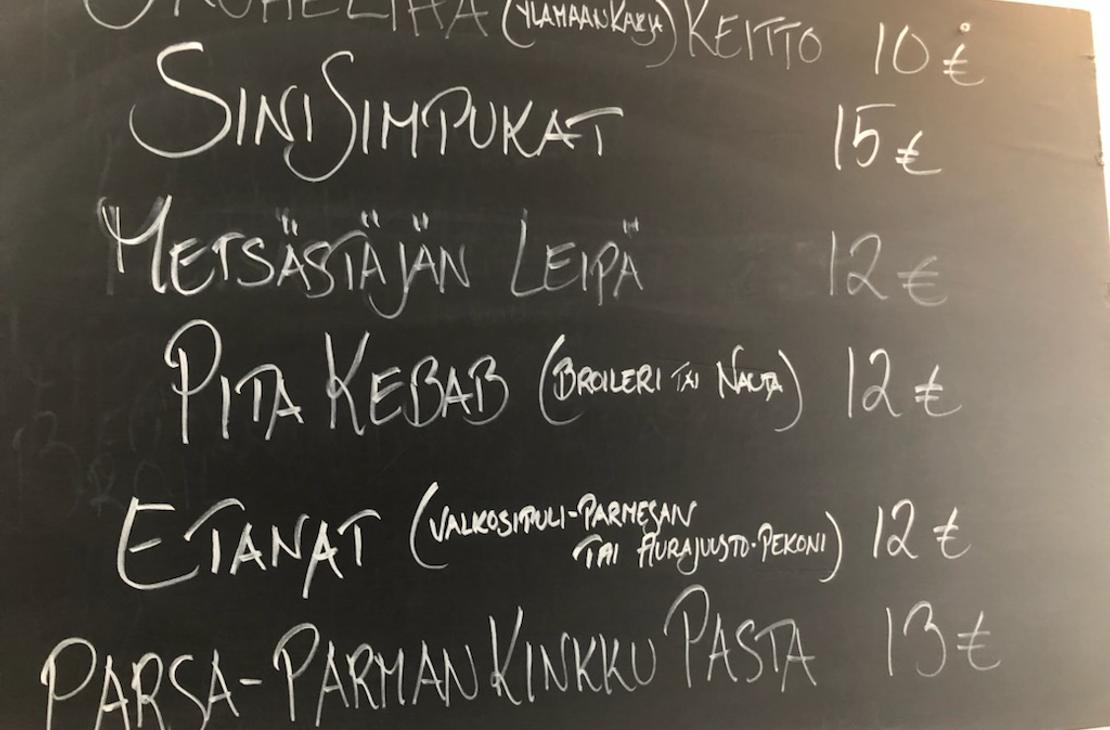 (YLÄMAANKARJA) KEITTO 10 €
SINISIMPUKAT 15 €
METSÄSTÄJÄN LEIPÄ 12 €
PITA KEBAB (BROILERI TAI NAUTA) 12 €
ETANAT (VALKOSIPULI-PARMESAN
TAI AURAJUUSTO-PEKONI) 12 €
PARSA-PARMANKINKKU PASTA 13 €